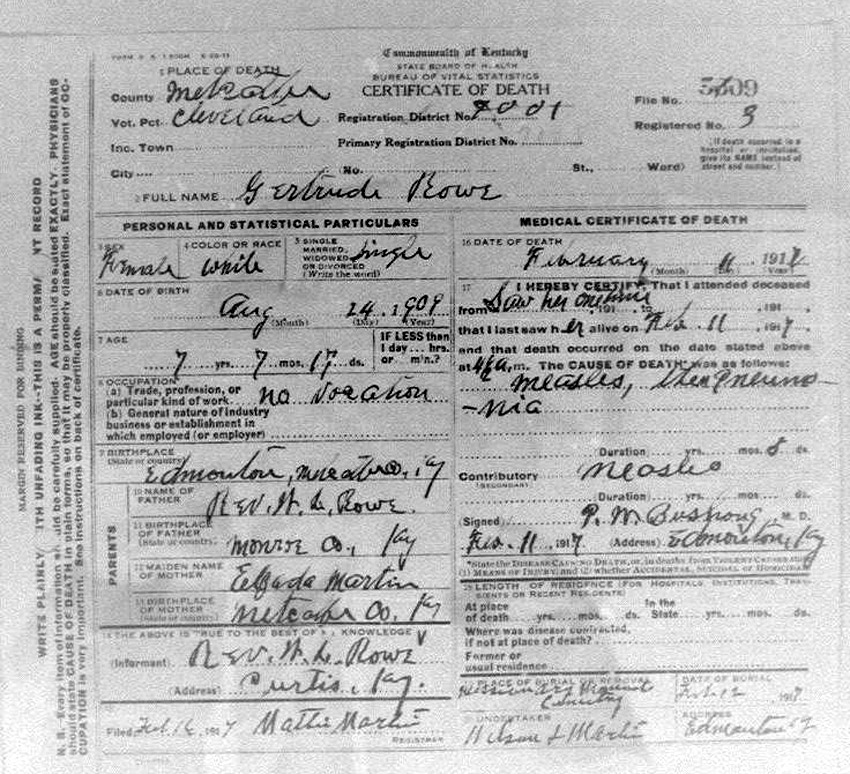 Commonwealth of Kentucky
STATE BOARD OF HEALTH
BUREAU OF VITAL STATISTICS
CERTIFICATE OF DEATH
1 PLACE OF DEATH
County Metcalfe
Vot. Pct. Cleveland
Inc. Town
City
Registration District No. 2001
Primary Registration District No.
(No. St., Ward)
File No. 5609
Registered No. 3
(If death occurred in a
hospital or institution,
give its NAME instead of
street and number.)
2 FULL NAME Gertrude Rowe
PERSONAL AND STATISTICAL PARTICULARS
3 SEX
Female
4 COLOR OR RACE
White
5 SINGLE
MARRIED,
WIDOWED
OR DIVORCED
(Write the word)
Single
6 DATE OF BIRTH
Aug 24, 1909
(Month) (Day) (Year)
7 AGE
7 yrs. 7 mos. 17 ds.
IF LESS than
1 day... hrs.
or m'n.?
8 OCCUPATION
(a) Trade, profession, or
particular kind of work no vocation
(b) General nature of industry
business or establishment in
which employed (or employer)
9 BIRTHPLACE
(State or country)
Edmonton, Metcalfe Co., Ky
PARENTS
10 NAME OF
FATHER
Rev. W. L. Rowe
11 BIRTHPLACE
OF FATHER
(State or country)
Monroe Co., Ky
12 MAIDEN NAME
OF MOTHER
Martin
13 BIRTHPLACE
OF MOTHER
(State or country)
Metcalfe Co. Ky
14 THE ABOVE IS TRUE TO THE BEST OF KNOWLEDGE
(Informant) Rev. W. L. Rowe
(Address) Curtis, Ky.
15
Filed Feb 16, 1917 Mattie Martin
REGISTRAR
MEDICAL CERTIFICATE OF DEATH
16 DATE OF DEATH
February 11, 1917
(Month) (Day) (Year)
17 I HEREBY CERTIFY, That I attended deceased
from Saw her one time, 191 to , 191
that I last saw her alive on Feb. 11, 1917,
and that death occurred on the date stated above
at m. The CAUSE OF DEATH* was as follows:
Measles, then Pneumo-
-nia
Duration yrs. mos. 8 ds.
Contributory Measles
(SECONDARY)
Duration yrs. mos. ds.
(Signed) P. W. Bushong M. D.
Feb. 11, 1917 (Address) Edmonton, Ky
*State the DISEASE CAUSING DEATH, or, in deaths from VIOLENT CAUSES state
(1) MEANS OF INJURY; and (2) whether ACCIDENTAL, SUICIDAL or HOMICIDAL
18 LENGTH OF RESIDENCE (FOR HOSPITALS, INSTITUTIONS, TRAN-
SIENTS OR RECENT RESIDENTS)
At place
of death yrs. mos. ds.
In the
State yrs. mos. ds.
Where was disease contracted,
if not at place of death?
Former or
usual residence
19 PLACE OF BURIAL OR REMOVAL
Missionary Mount
Cemetery
DATE OF BURIAL
Feb. 12, 1917
20 UNDERTAKER
Wilson & Martin
ADDRESS
Edmonton Ky
MARGIN RESERVED FOR BINDING
WRITE PLAINLY ITH UNFADING INK--THIS IS A PERMA NT RECORD
N. B.--Every item of information uld be carefully supplied. AGE should be stated EXACTLY. PHYSICIANS
should state CAUSE OF DEATH in plain terms, so that it may be properly classified. Exact statement of OC-
CUPATION is very important. See instructions on back of certificate.